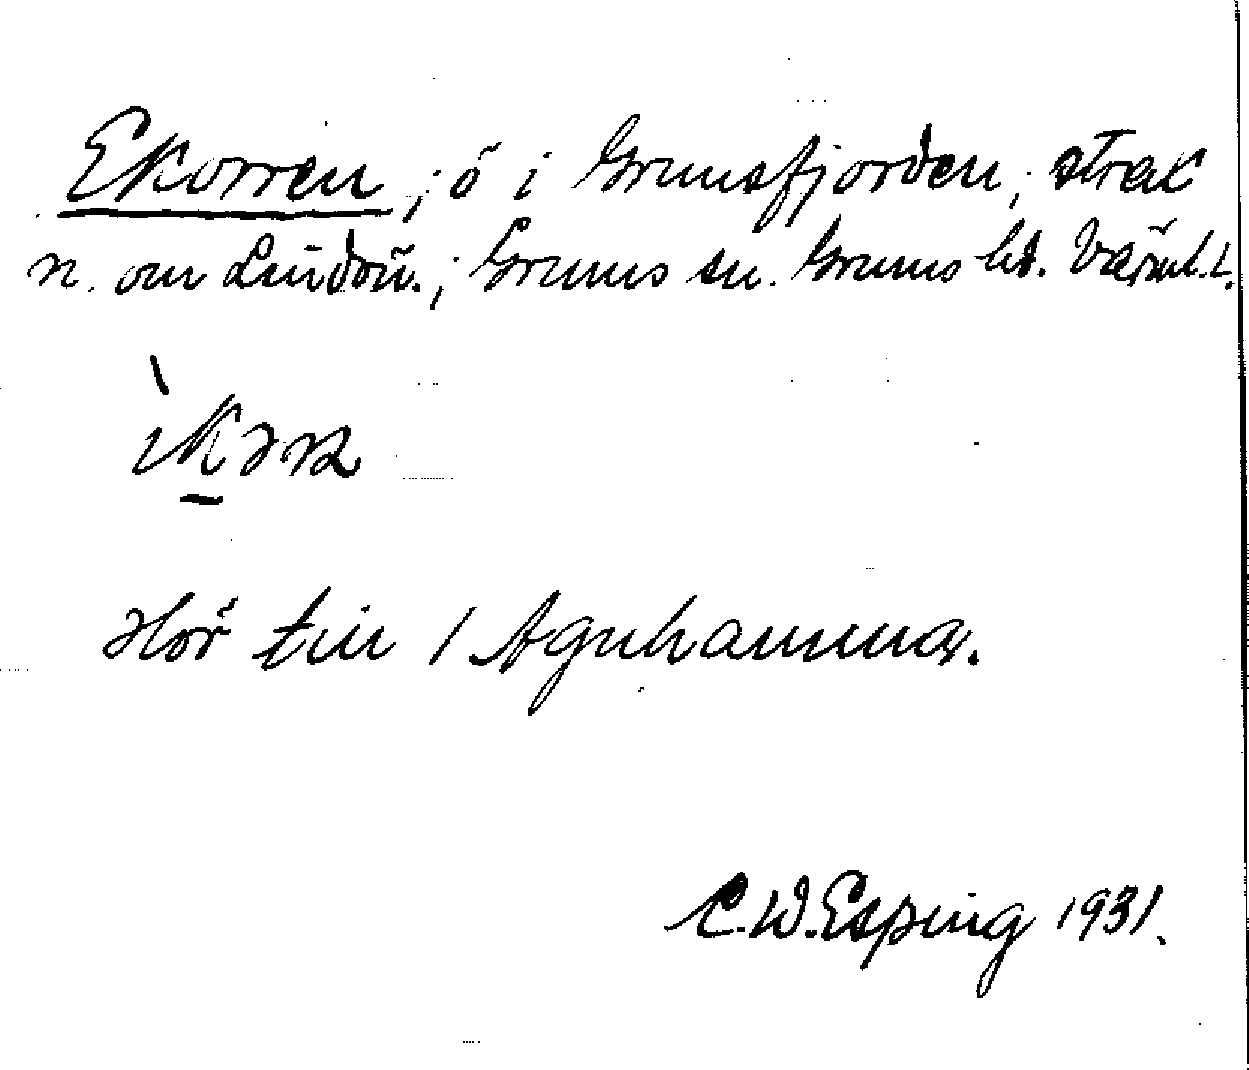 Ekorren, ; ö i Grumsfjorden, strax
n. om Lindön. ; Grums sn. Grums hd. Värml. l.
ìkəɳ
Hör till / Agnhammar.
C. W. Esping 1931.